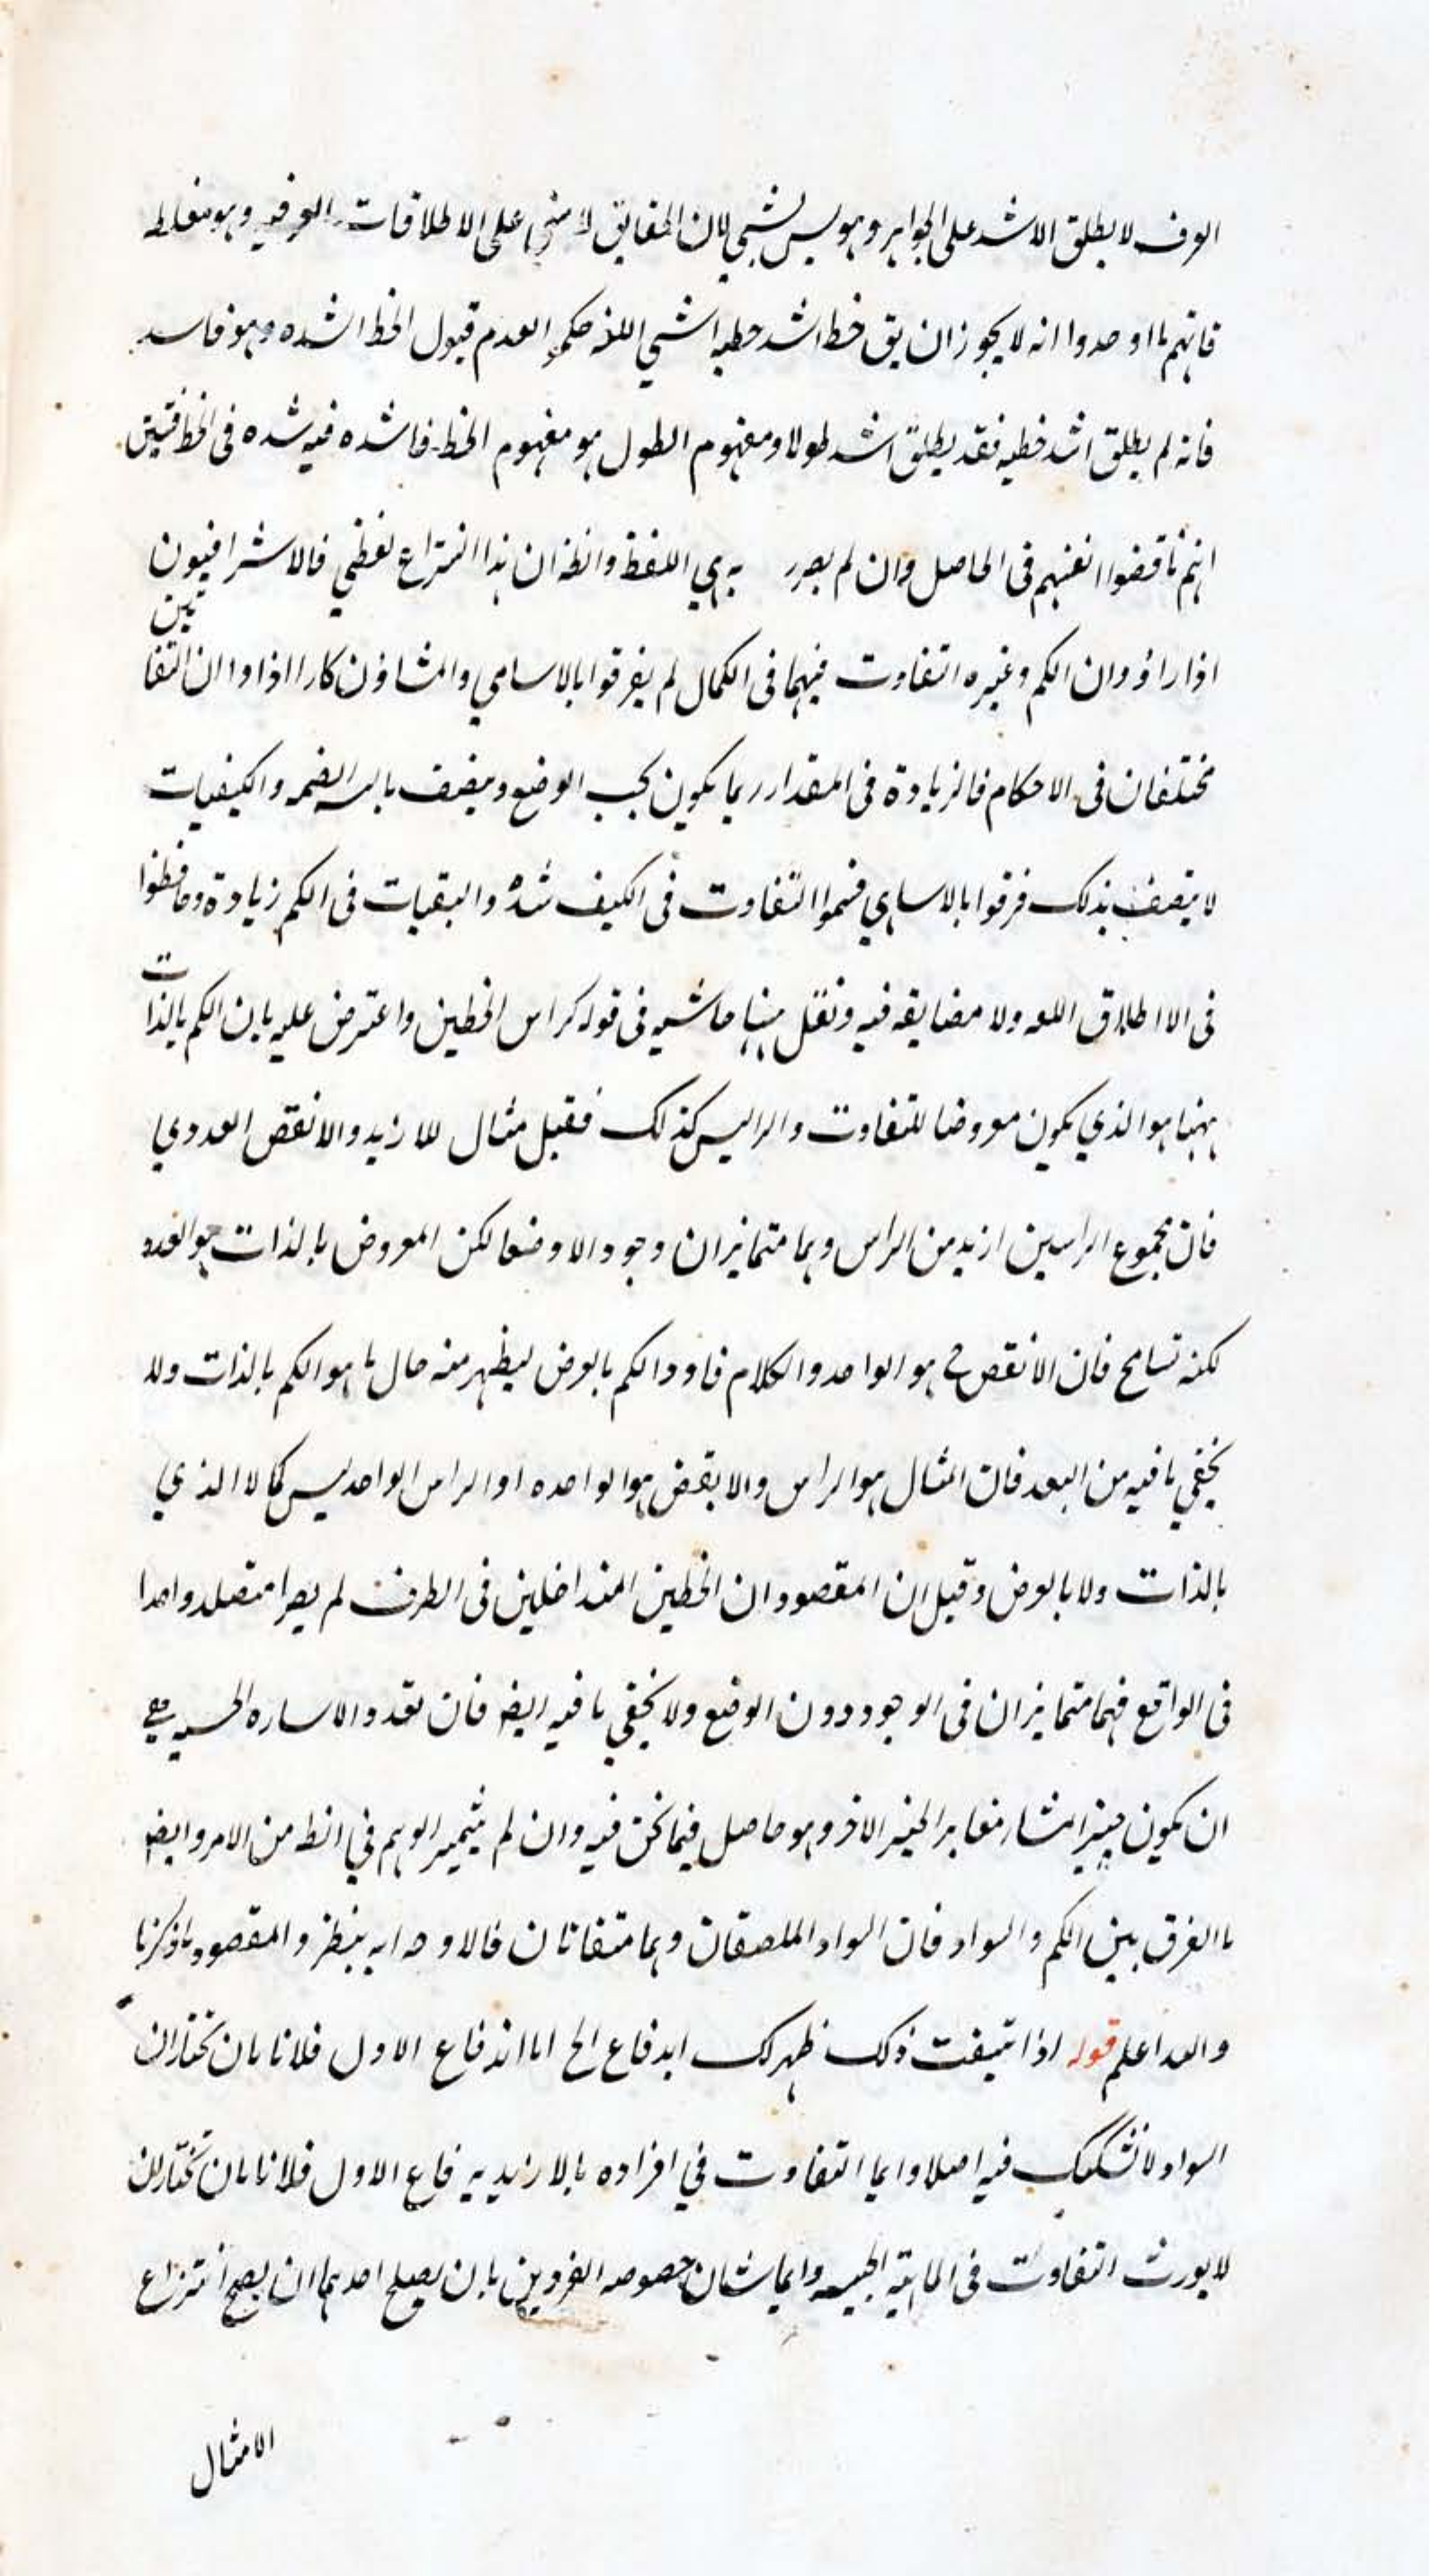 العرف لا يطلق الاشد على الجواهر وهو ليس بشيء لان الحقايق لا تبني على الاطلاقات العرفيه وهو مغلطه
فانهم ما اوجدوا انه لا يجوز ان يق خط اشد خطيه اشي حكم العدم قبول الخط الشده وهو فاسد
فانه لم يطلق اشد خطيه فقد يطلق اشد طولا ومفهوم الطول هو مفهوم الخط فاشده فيه شده في الخط فتبين
انهم ناقضوا انفسهم في الحاصل وان لم يصرر بهي اللفظ وانظ ان هذا النزاع لفظي فالاشراقيون
اذا راؤ وان الكم وغيره التفاوت فيهما في الكمال لم يفرقوا بالاسامي والمشاؤن كارا اذا اوا ان التفاتين
مختلفان في الاحكام فالزيادة في المقدار ربما يكون بحسب الوضع ويضف والكيفيات
لا يتصف بذلك فرقوا بالاسامي فسموا التفاوت في الكيف شدة والبقيات في الكم زيادة وحافظوا
في الا اطلاق اللعه ولا مضايقه فيه ونقل منها حاشيه في قوله كراس الخطين واعترض عليه بان الكم بالذات
ههنا هو الذي يكون معروضا للتفاوت والراليس كذلك فقيل مثال للازيد والانقص العددي
فان مجموع الراسين ازيد من الراس وهما متمايزان وجودا لا وضعا لكن المعروض بالذات هو العدد
لكنه تسامح فان الانقص ح هو الواحد والكلام فاورد الكم بالعرض ليظهر منه حال ما هو الكم بالذات ولا
يخفي ما فيه من البعد فان المثال هو الراس والا بقص هو الواحده او الراس الواحد ليس كما لا الذي
بالذات ولا بالعرض وقيل ان المقصود ان الخطين المتداخلين في الطرف لم يصرا متصلا واحدا
في الواقع فهما متمايزان في الوجود دون الوضع ولا يخفي ما فيه ايضا فان تعدد الاساره الحسيه هي
ان يكون حيز المشار مغاير الحيز الاخر وهو حاصل فيما نحن فيه وان لم يتميز الوهم في انظ من الامر وايضا
ما الفرق بين الكم والسواد فان السواد الملصقان وهما متفاتان فالاوجه ابه ينظر والمقصود ما ذكرنا
والله اعلم قوله اذا تيقنت ذلك ظهر لك ابدفاع الخ اما اندفاع الاول فلانا بان نختار ان
السواد لا تشكيك فيه اصلا وايما التفاوت في افراده بالازيديه فاع الاول فلانا بان نختار ان
لا يورث التفاوت في الماهية الجنسيه وايما شان خصوصه الفردين بان يصلح احدهما ان يصح انتزاع
الامثال